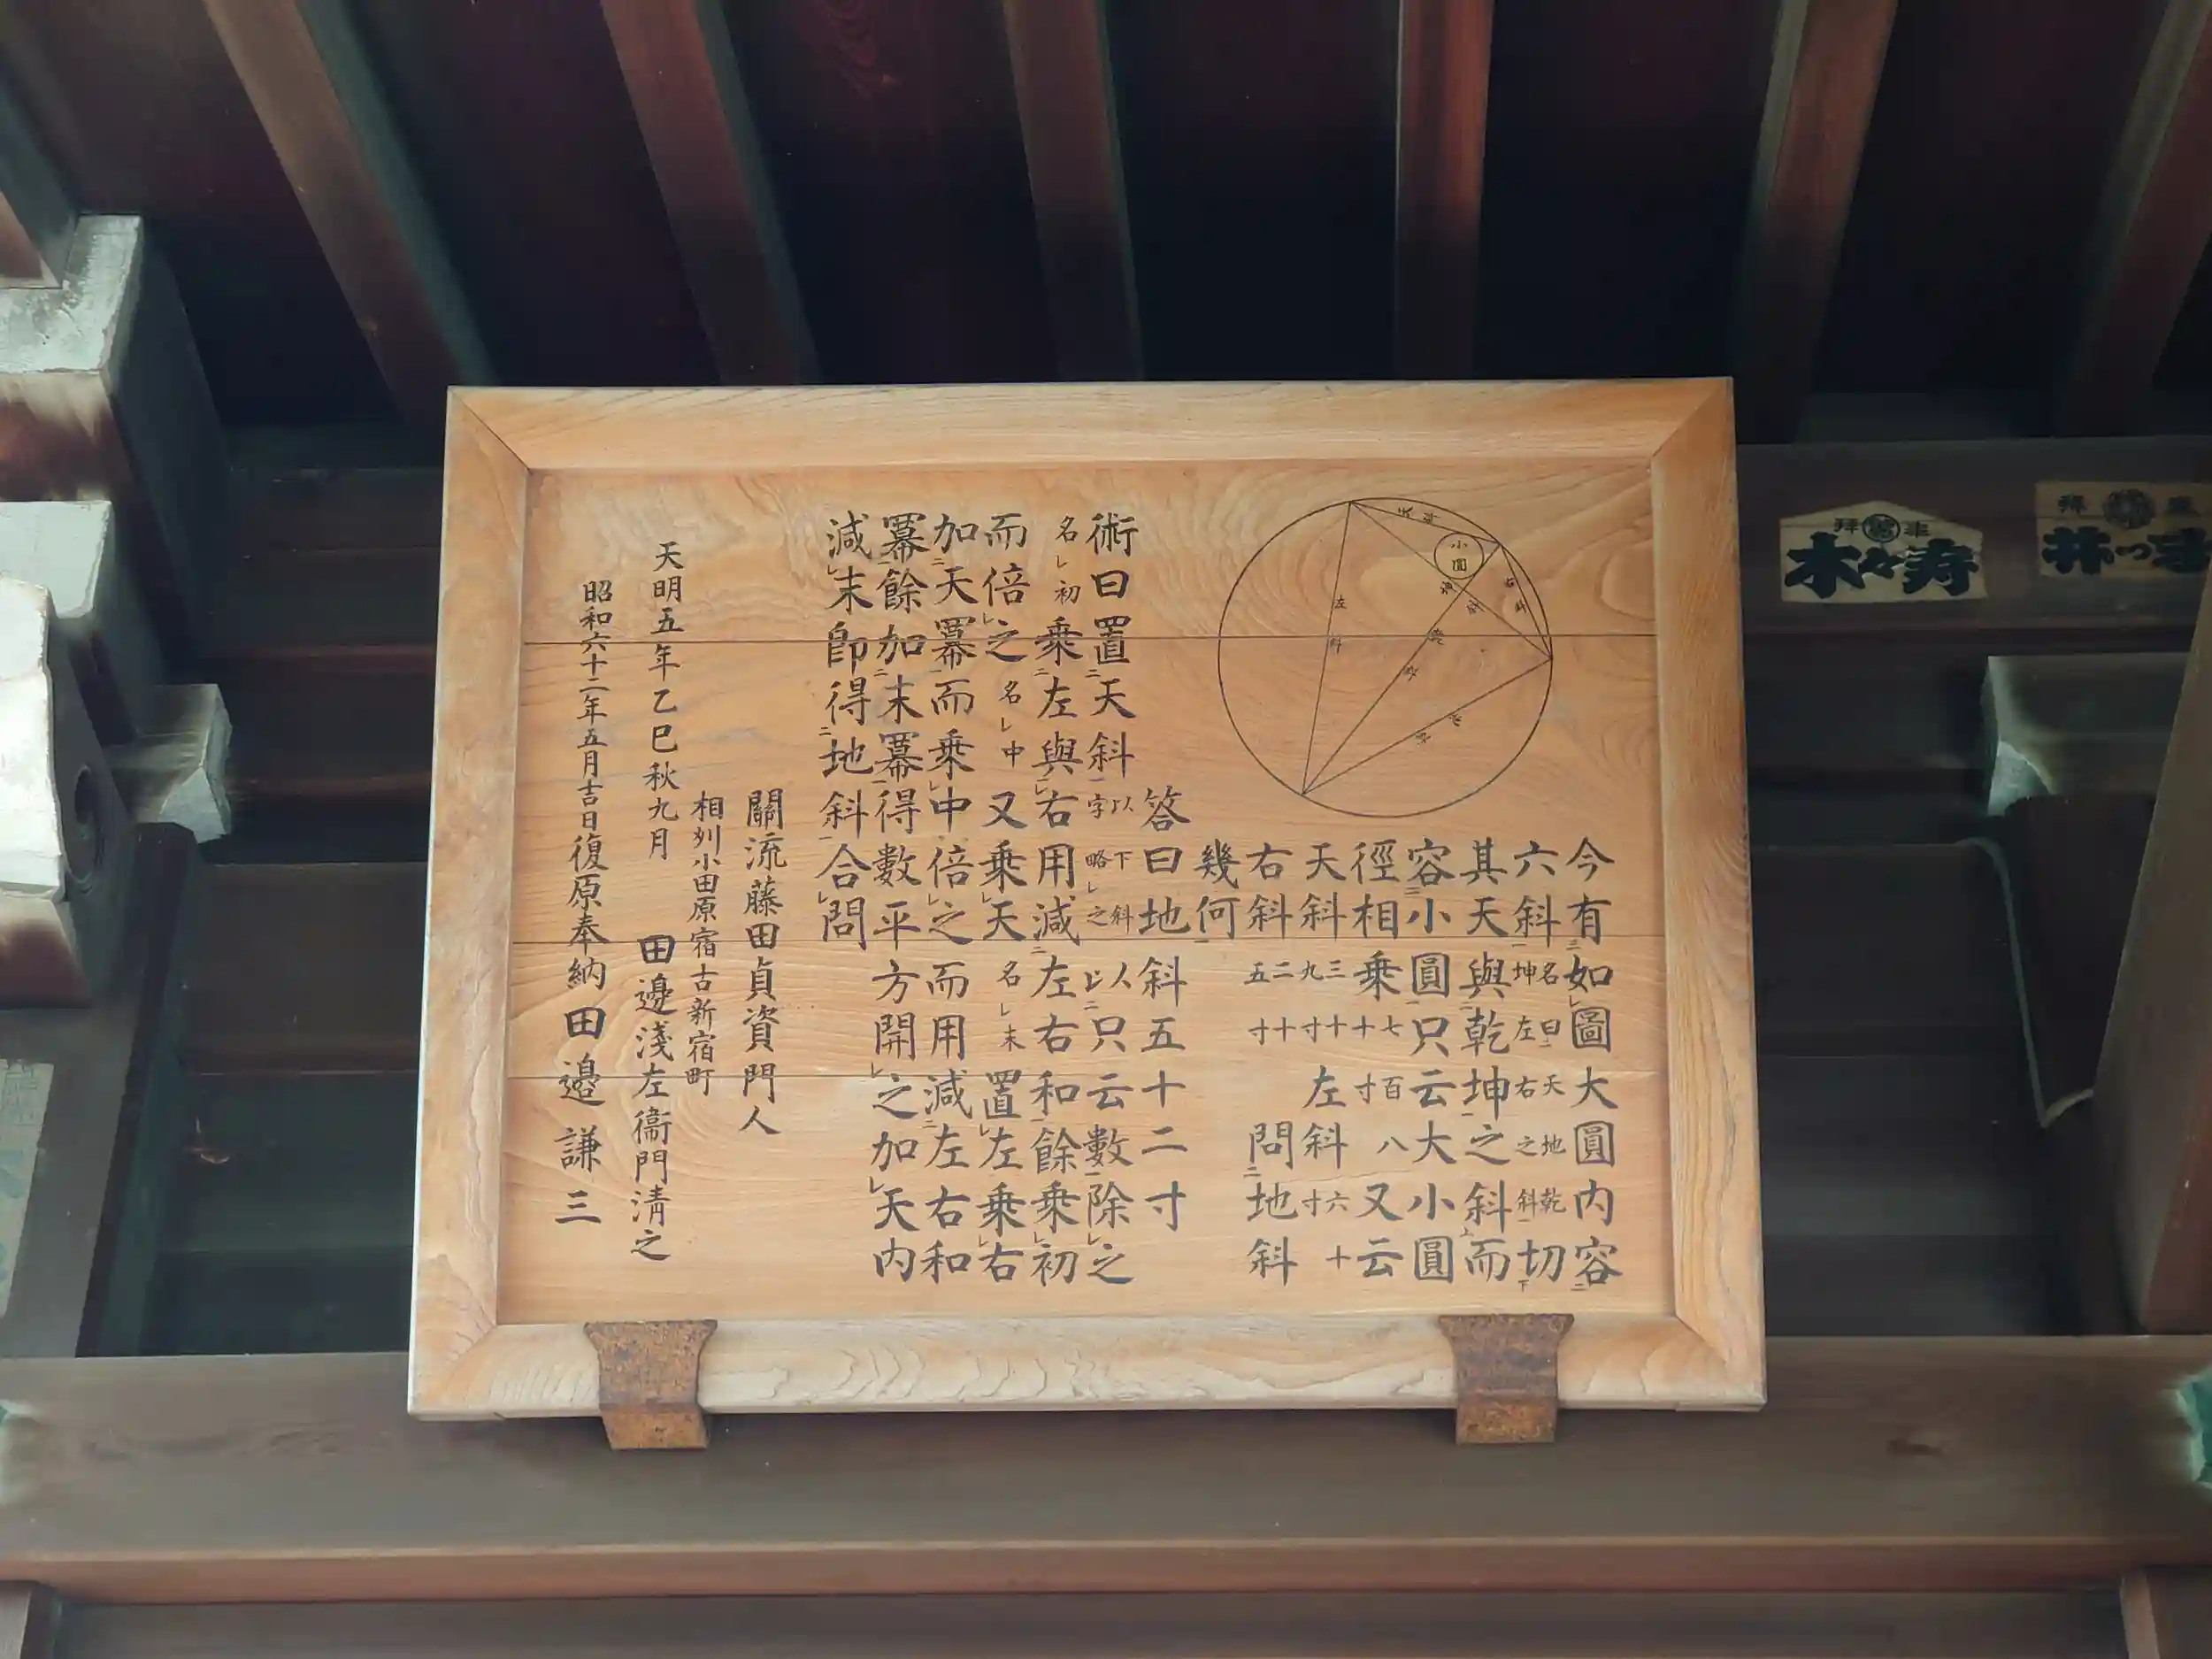 今有如圖大圓内容
六斜名曰天地乾坤左右之斜切
其天與乾坤之斜而
容小圓只云大小圓
徑相乗七百八十寸又云
天斜三十九寸左斜六十寸
右斜二十五寸問地斜
幾何
答曰地斜五十二寸
術曰置天斜以下斜字略之以只云數除之
名初乗左與右用減左右和餘乗初
而倍之名中又乗天名末置左乗右
加天冪而乗中倍之而用減左右和
冪餘加末冪得數平方開之加天内
減末卽得地斜合問
關流藤田貞資門人
相刕小田原宿古新宿町
天明五年乙巳秋九月 田邊淺左衞門清之
昭和六十二年五月吉日復原奉納 田邉謙三
天斜
小圓
右斜
左斜
坤斜
乾斜
地斜
木々寿